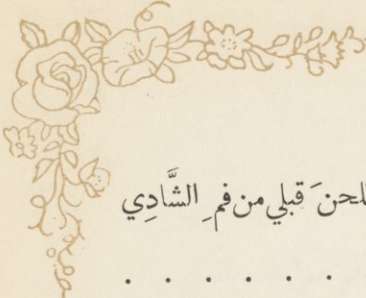 للحنَ قبلي من فمِ الشَّادِي
. . . . . .